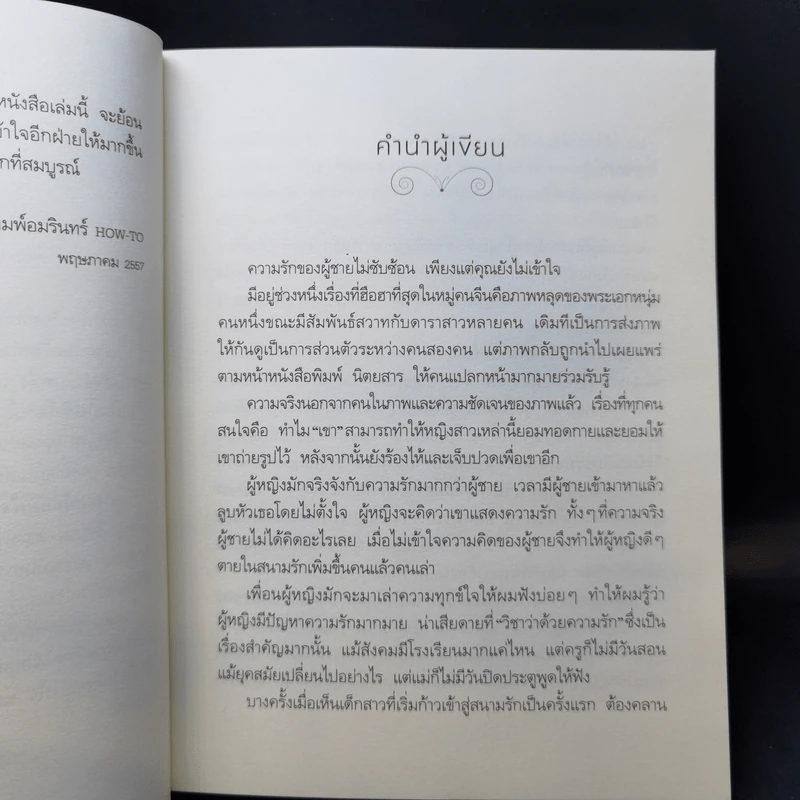 หนังสือเล่มนี้ จะย้อน
ข้าใจอีกฝ่ายให้มากขึ้น
กที่สมบูรณ์
มพ์อมรินทร์ HOW-TO
พฤษภาคม 2557
คำนำผู้เขียน
ความรักของผู้ชายไม่ซับซ้อน เพียงแต่คุณยังไม่เข้าใจ
มีอยู่ช่วงหนึ่งเรื่องที่ฮือฮาที่สุดในหมู่คนจีนคือภาพหลุดของพระเอกหนุ่ม
คนหนึ่งขณะมีสัมพันธ์สวาทกับดาราสาวหลายคน เดิมทีเป็นการส่งภาพ
ให้กันดูเป็นการส่วนตัวระหว่างคนสองคน แต่ภาพกลับถูกนำไปเผยแพร่
ตามหน้าหนังสือพิมพ์ นิตยสาร ให้คนแปลกหน้ามากมายร่วมรับรู้
ความจริงนอกจากคนในภาพและความชัดเจนของภาพแล้ว เรื่องที่ทุกคน
สนใจคือ ทำไม “เขา” สามารถทำให้หญิงสาวเหล่านี้ยอมทอดกายและยอมให้
เขาถ่ายรูปไว้ หลังจากนั้นยังร้องไห้และเจ็บปวดเพื่อเขาอีก
ผู้หญิงมักจริงจังกับความรักมากกว่าผู้ชาย เวลามีผู้ชายเข้ามาหาแล้ว
ลูบหัวเธอโดยไม่ตั้งใจ ผู้หญิงจะคิดว่าเขาแสดงความรัก ทั้งๆ ที่ความจริง
ผู้ชายไม่ได้คิดอะไรเลย เมื่อไม่เข้าใจความคิดของผู้ชายจึงทำให้ผู้หญิงดีๆ
ตายในสนามรักเพิ่มขึ้นคนแล้วคนเล่า
เพื่อนผู้หญิงมักจะมาเล่าความทุกข์ใจให้ผมฟังบ่อยๆ ทำให้ผมรู้ว่า
ผู้หญิงมีปัญหาความรักมากมาย น่าเสียดายที่ “วิชาว่าด้วยความรัก” ซึ่งเป็น
เรื่องสำคัญมากนั้น แม้สังคมมีโรงเรียนมากแค่ไหน แต่ครูก็ไม่มีวันสอน
แม้ยุคสมัยเปลี่ยนไปอย่างไร แต่แม่ก็ไม่มีวันปิดประตูพูดให้ฟัง
บางครั้งเมื่อเห็นเด็กสาวที่เริ่มก้าวเข้าสู่สนามรักเป็นครั้งแรก ต้องคลาน